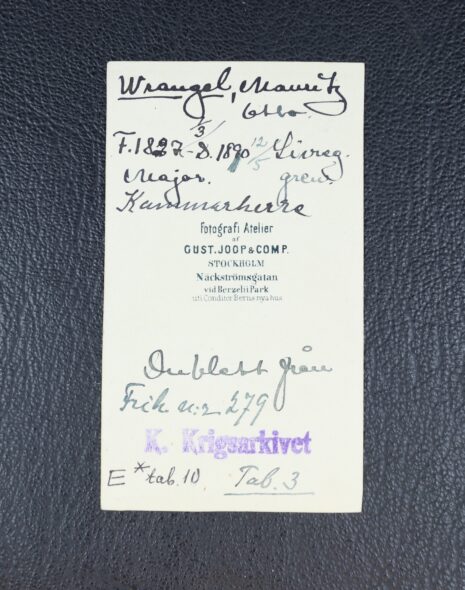 Wrangel, Mauritz
Otto.
1/3
F. 1827 - D. 1890 12/5 Livreg.
Major. gren.
Kammarherre
Fotografi Atelier
af
GUST. JOOP & COMP.
STOCKHOLM
Näckströmsgatan
vid Berzelii Park
uti Conditor Berns nya hus
Dublett från
Frih. n:r 279
K. Krigsarkivet
E* tab. 10 Tab. 3